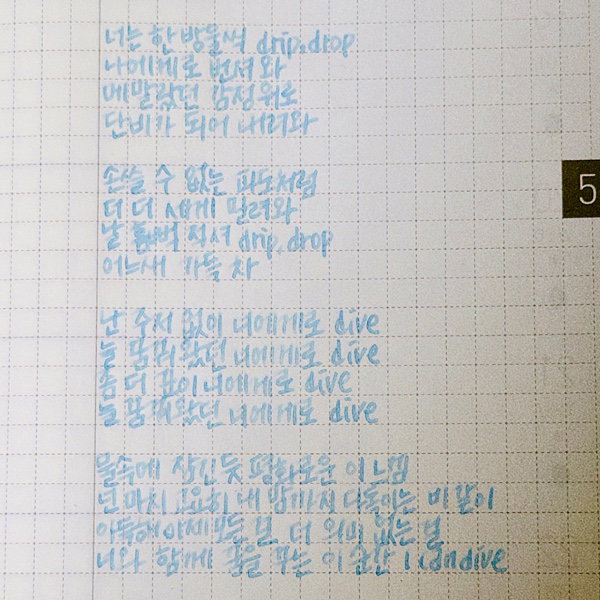 너는 한 방울씩 drip, drop
나에게로 번져와
메말랐던 감정위로
단비가 되어 내려와
손쓸 수 없는 파도처럼
더 더 세게 밀려와
날 흠뻑 적셔 drip, drop
어느새 가득 차
난 주저 없이 너에게로 dive
늘 꿈꿔왔던 너에게로 dive
좀 더 깊이 너에게로 dive
늘 꿈꿔왔던 너에게로 dive
물속에 잠긴 듯 평화로운 이 느낌
넌 마치 고요히 내 맘까지 다독이는 비 같이
아득해 이제 모든 건 더 의미 없는 걸
너와 함께 꿈을 꾸는 이 순간 I can dive
5